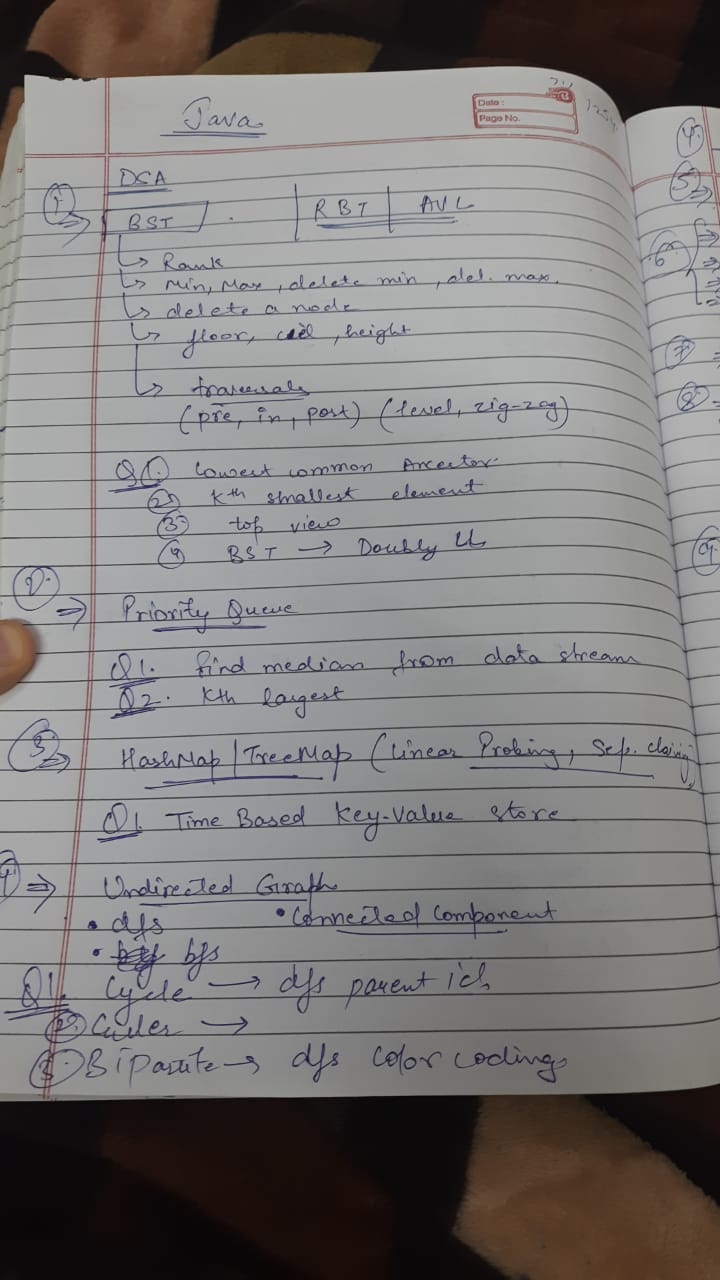 Java
Date :
Page No.
DSA
1.
⇒ BST | RBT | AVL
↳ Rank
↳ Min, Max, delete min, del. max.
↳ delete a node
↳ floor, ceil, height
↳ traversals
(pre, in, post) (level, zig-zag)
Q1. Lowest common Ancestor
2. Kth smallest element
3. top view
4 BST → Doubly LL
2.
⇒ Priority Queue
Q1. find median from data stream
Q2. Kth largest
3.
⇒ HashMap | TreeMap (Linear Probing, Sep. chaining)
Q1 Time Based Key-Value store
4 ⇒ Undirected Graph
• dfs • Connected Component
• bfs
Q1. Cycle → dfs parent
2. Euler →
3. Biparite → dfs color codings
4.
5.
6.
7
8
9.